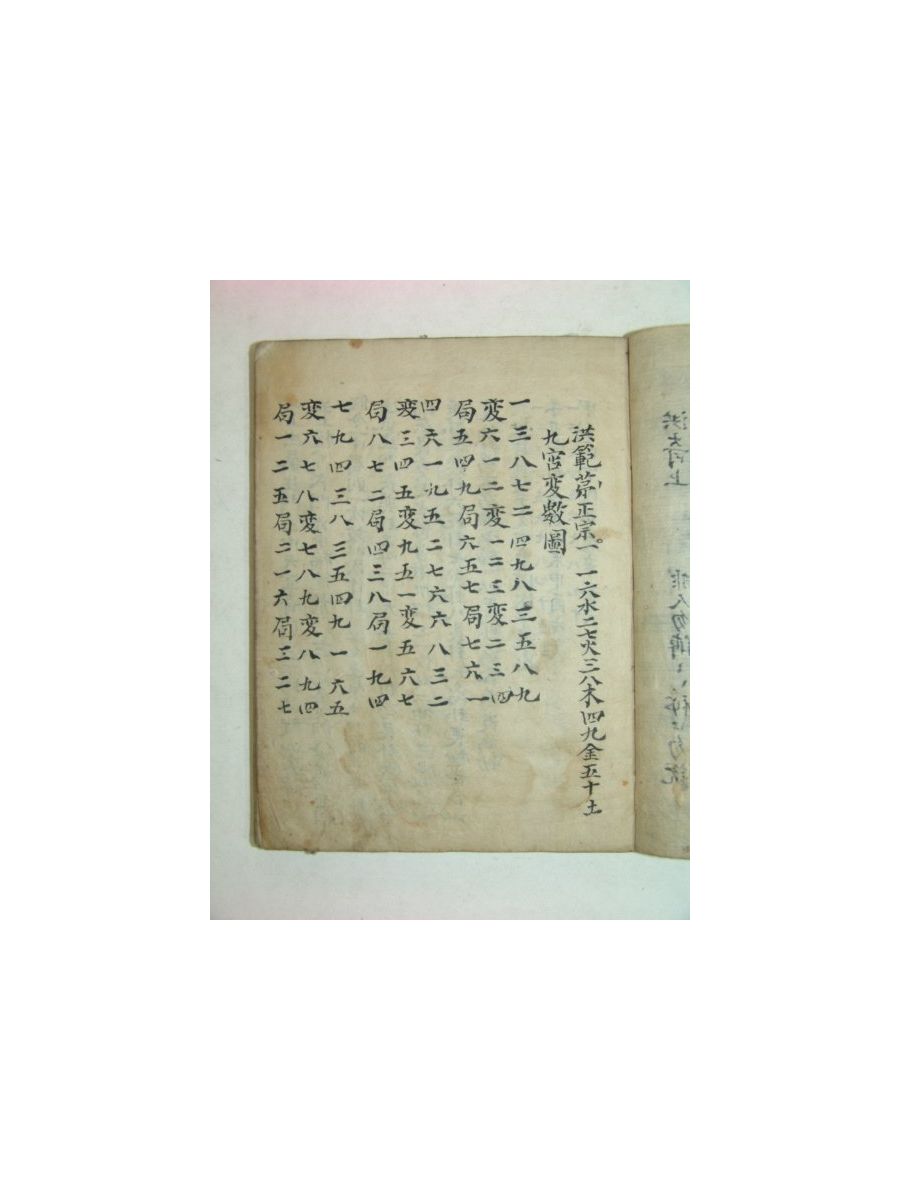 洪範正宗。一 一六水二七火三八木四九金五十土
九宮変數圖
一三八七二四九八三五八九
変六一二変一二三変二三四
局五四九局六五七局七六一
四六一九五二七六六八三二
変三四五変九五一変五六七
局八七二局四三八局一九四
七九四三八三五四九一六五
変六七八変七八九変八九四
局一二五局二一六局三二七